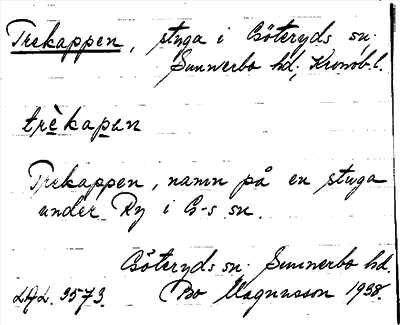 Trekappen, stuga i Göteryds sn,
Sunnerbo hd, Kronob. l.
trèkapen
Trekappen, namn på en stuga
under Ry i G-s sn.
Göteryds sn. Sunnerbo hd.
L.A.L. 3573. Bo Magnusson 1938.